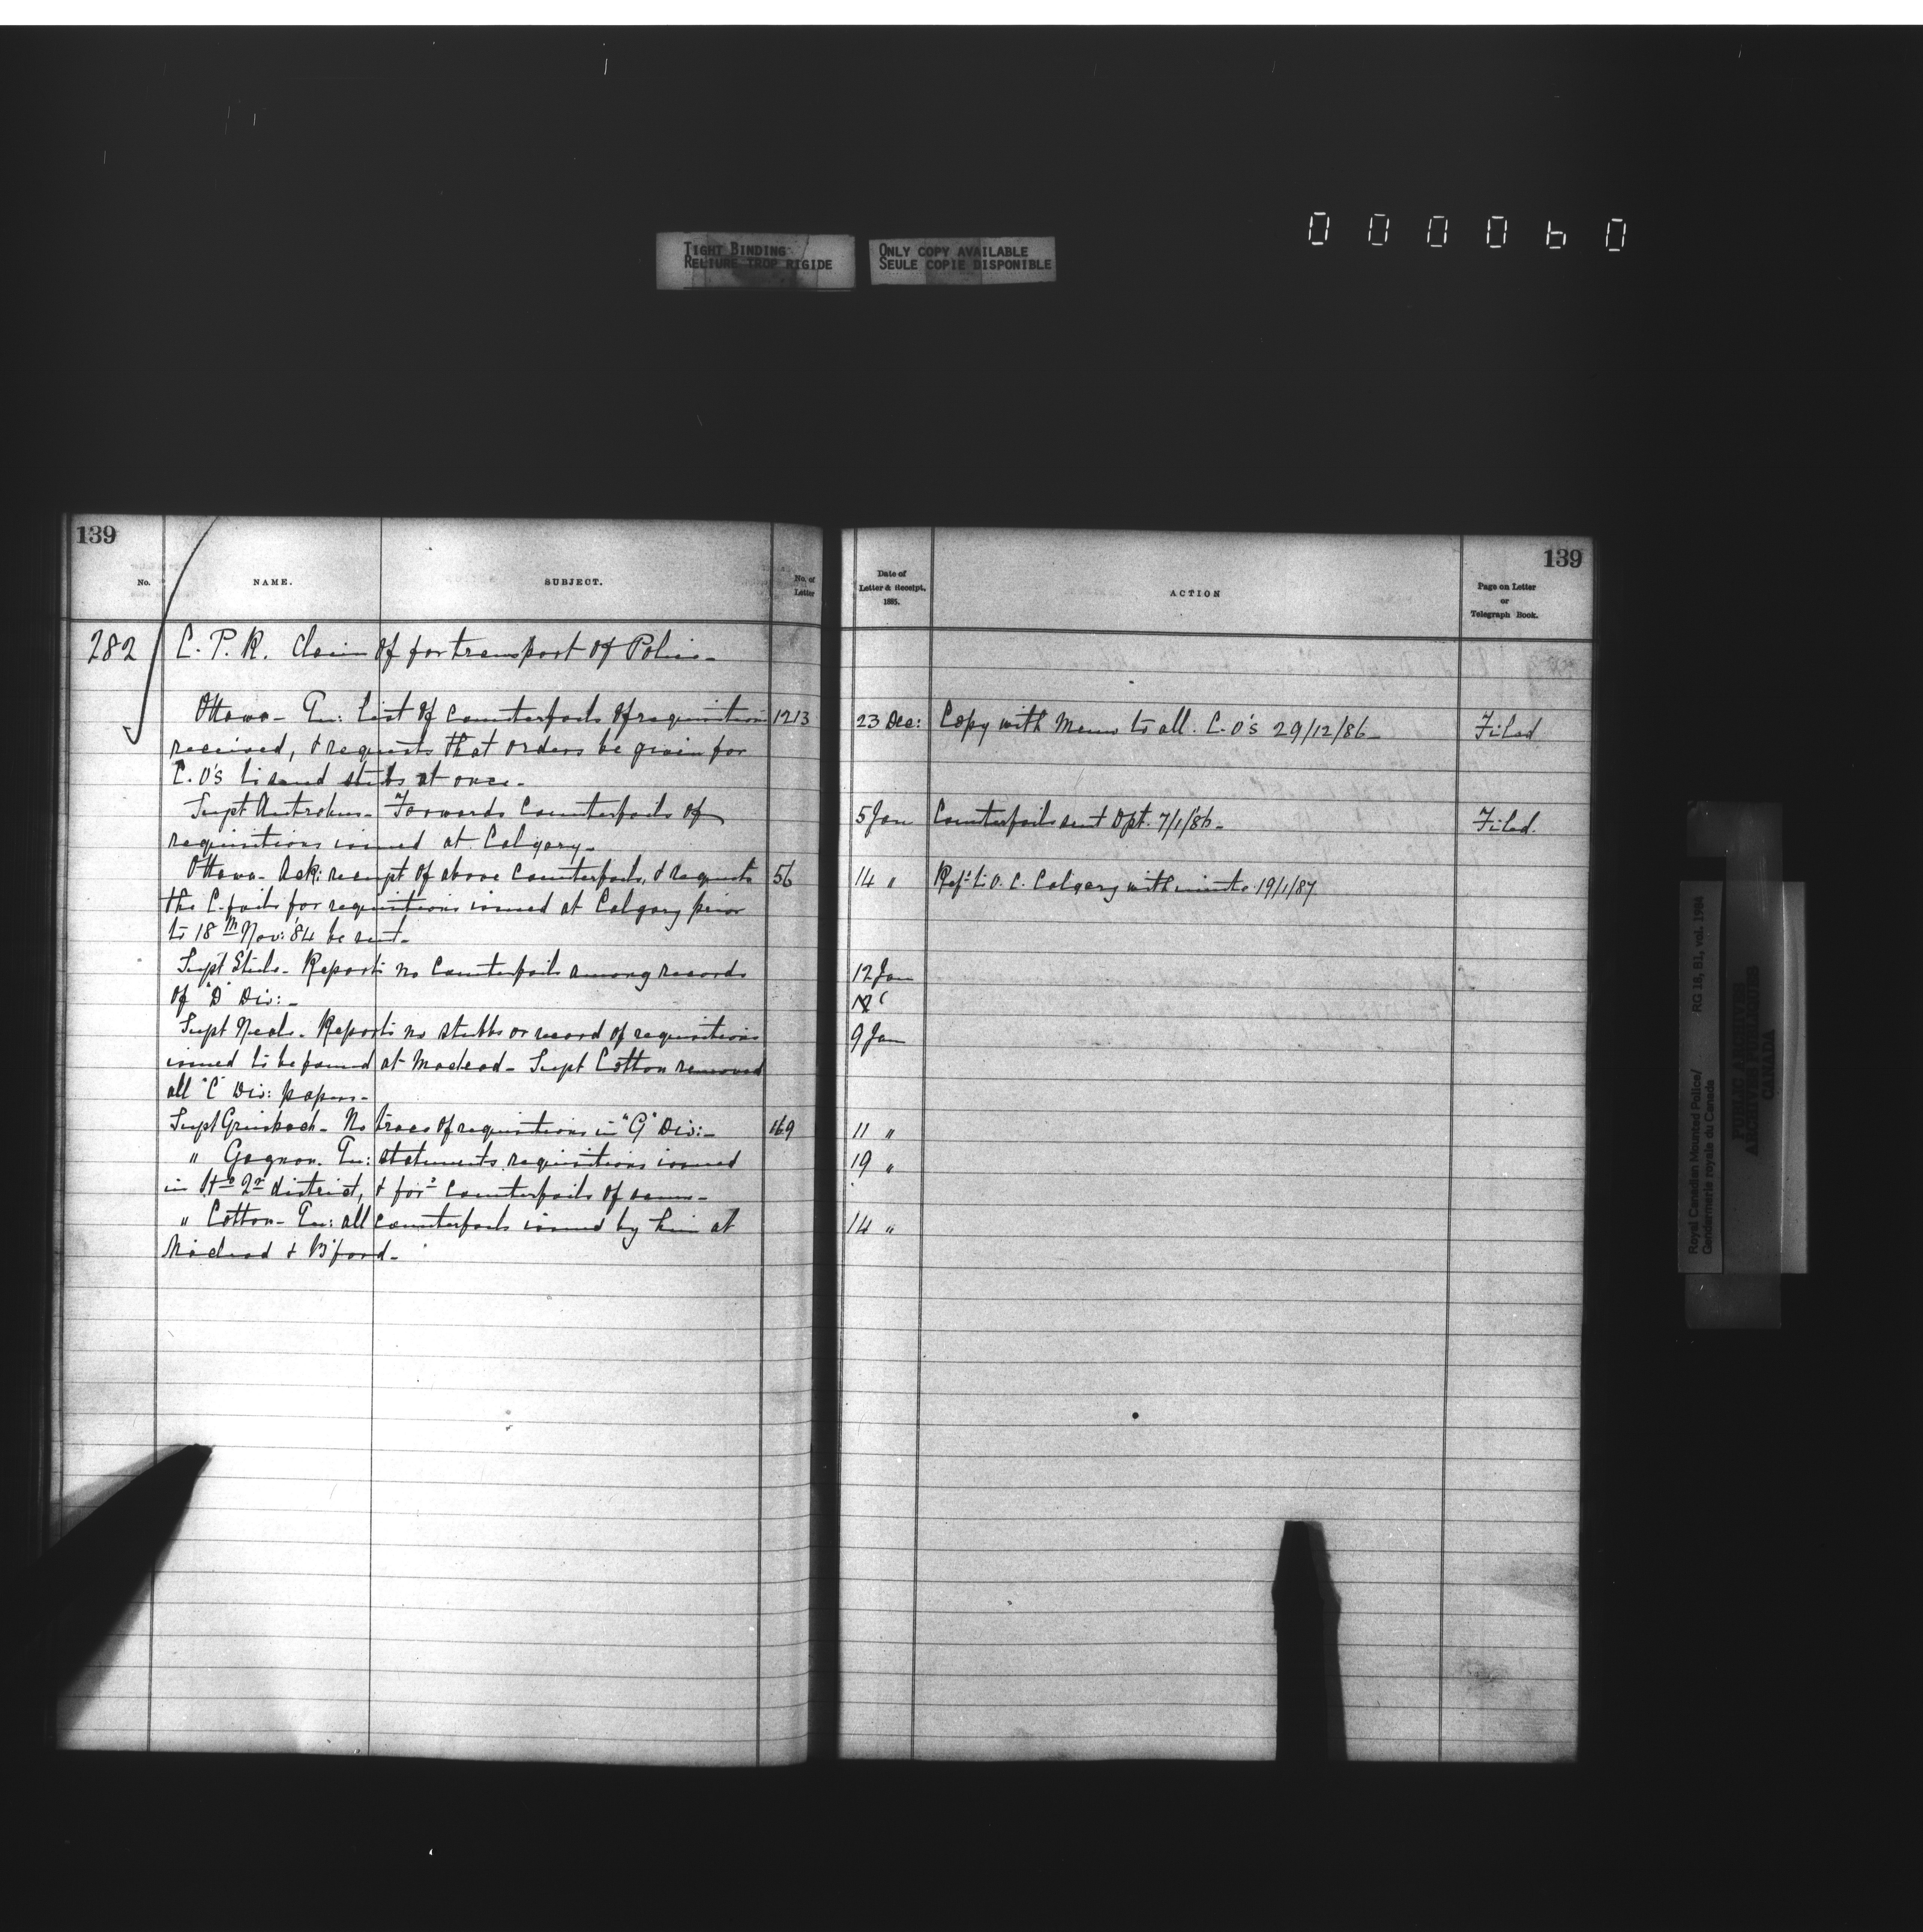 000060
TIGHT BINDING
RELIURE TROP RIGIDE
ONLY COPY AVAILABLE
SEULE COPIE DISPONIBLE
139
No. NAME. SUBJECT. No. of Letter
282 C. P. R. Claim of for transport of Police -
Ottawa - En: List of Counterfoils of requisitions 1213
received, & requests that orders be given for
C.O's to send stubs at once -
Supt Antrobus - Forwards Counterfoils of
requisitions issued at Calgary -
Ottawa - Ack: receipt of above Counterfoils, & requests 56
the C.foils for requisitions issued at Calgary prior
to 18th Nov: '84 be sent -
Supt Steele - Reports no Counterfoils among records
of "D" Div: -
Supt Neale - Reports no stubbs or record of requisitions
issued to be found at Macleod - Supt Cotton removed
all "C" Div: papers -
Supt Griesbach - No trace of requisitions in "G" Div: - 169
" Gagnon. En: statements requisitions issued
in district, & for Counterfoils of same -
" Cotton - En: all Counterfoils issued by him at
Macleod & B'ford -
139
Date of Letter & Receipt, 1885.
ACTION
Page on Letter or Telegraph Book.
23 Dec: Copy with Memo to all C.O's 29/12/86 - Filed
5 Jan Counterfoils sent Dpt. 7/1/86 - Filed.
14 " Ref'd to O. C. Calgary with minute 19/1/87
12 Jan
9 Jan
11 "
19 "
14 "
Royal Canadian Mounted Police/ RG 18, B1, vol. 1984
Gendarmerie royale du Canada
PUBLIC ARCHIVES
ARCHIVES PUBLIQUES
CANADA